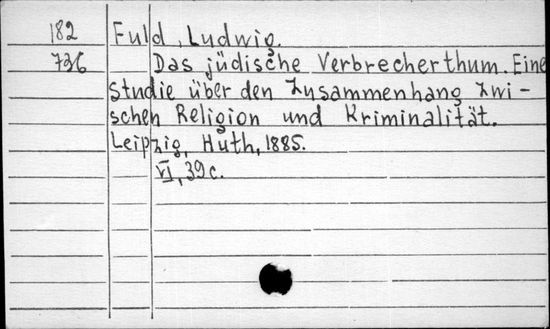 182 Fuld, Ludwig.
736 Das jüdische Verbrecherthum. Eine
Studie über den Zusammenhang zwi-
schen Religion und Kriminalität.
Leipzig, Huth, 1885.
VI, 39 c.